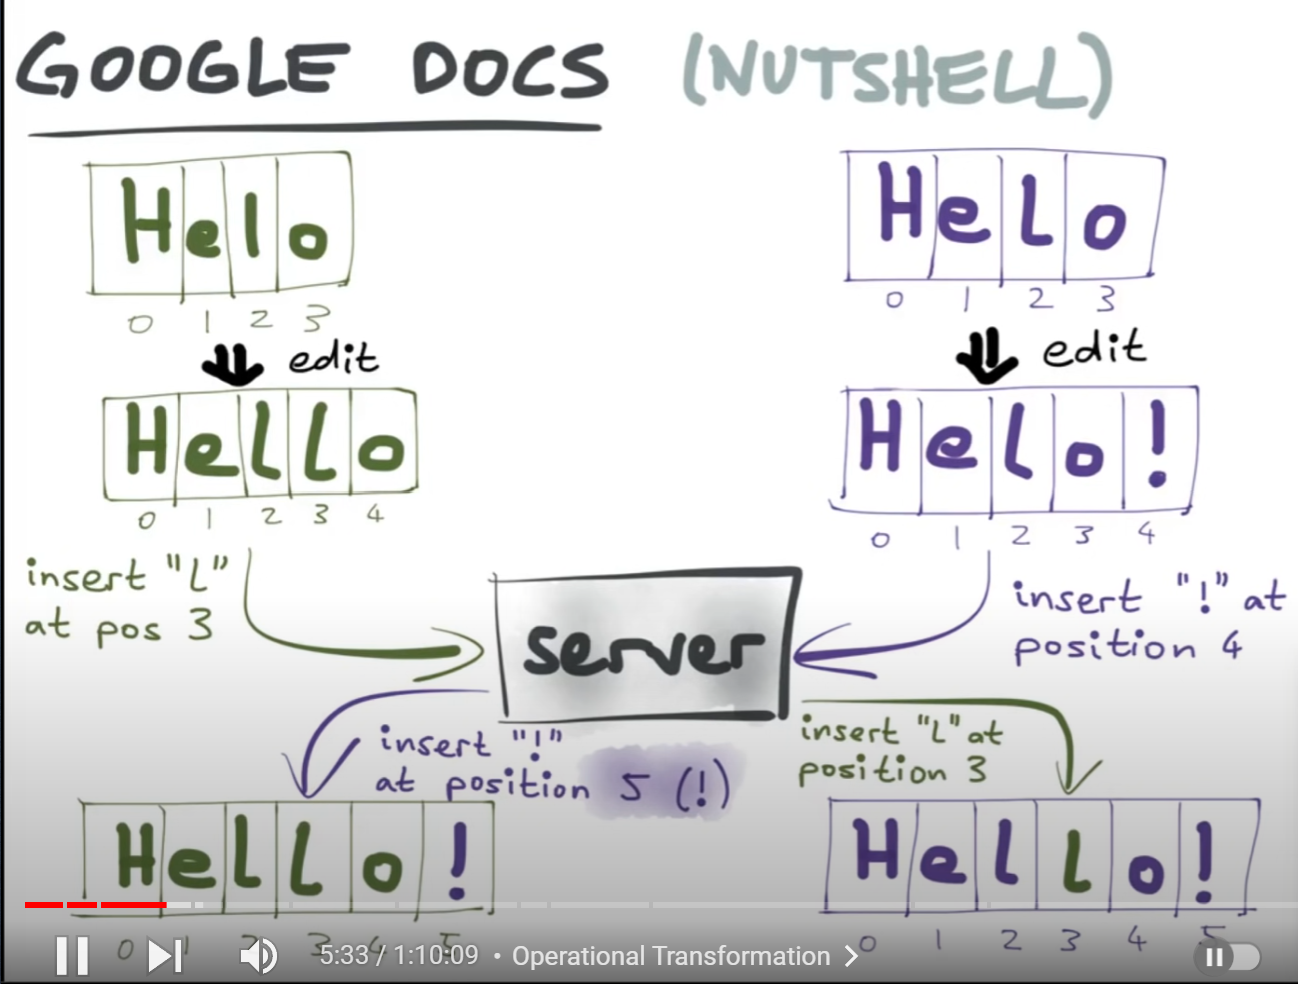 GOOGLE DOCS (NUTSHELL)
Helo
0 1 2 3
edit
Hello
0 1 2 3 4
insert "L"
at pos 3
Helo
0 1 2 3
edit
Helo!
0 1 2 3 4
insert "!" at
position 4
server
insert "!"
at position 5 (!)
insert "L" at
position 3
Hello!
0 1 2 3 4 5
Hello!
0 1 2 3 4 5
5:33 / 1:10:09 • Operational Transformation